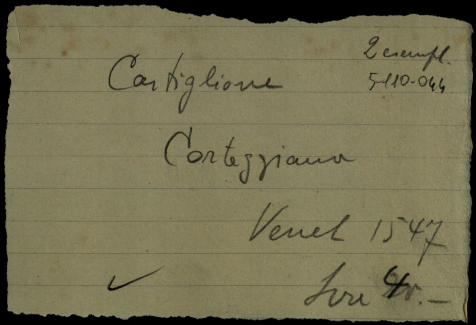 2 esempl.
5-110-044
Castiglione
Corteggiano
Venet 1547
Lire 40.—